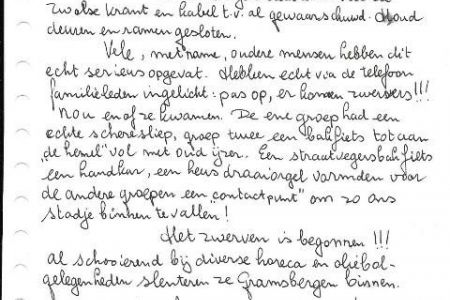 Zwolse krant en kabel t.v. al gewaarschuwd. Houd
deuren en ramen gesloten.
Vele, met name, oudere mensen hebben dit
echt serieus opgevat. Hebben echt via de telefoon
familieleden ingelicht: pas op, er komen zwervers!!!
Nou en of ze kwamen. De ene groep had een
echte scheresliep, groep twee een bakfiets tot aan
"de hemel" vol met oud ijzer. Een straatvegersbakfiets
een handkar, een heus draaiorgel vormden voor
de andere groepen een "contactpunt" om zo ons
stadje binnen te vallen!
Het zwerven is begonnen!!!
al schooierend bij diverse horeca en oliebol-
gelegenheden slenteren ze Gramsbergen binnen.